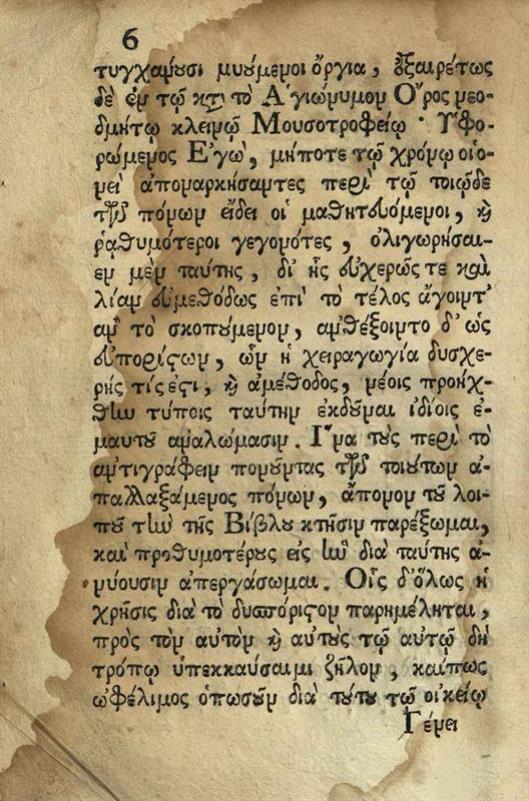 6
τυγχάνουσι μυούμενοι ὄργια, ἐξαιρέτως
δὲ ἐν τῷ κατὰ τὸ Ἁγιώνυμον Ὄρος νεο-
δμήτῳ κλεινῷ Μουσοτροφείῳ· Ὑφο-
ρώμενος Ἐγὼ, μήποτε τῷ χρόνῳ οἱο-
νεὶ ἀποναρκήσαντες περὶ τῷ τοιῷδε
τῶν πόνων εἴδει οἱ μαθητευόμενοι, καὶ
ῥᾳθυμότεροι γεγονότες, ὀλιγωρήσαι-
εν μὲν ταύτης, δι' ἧς εὐχερῶς τε καὶ
λίαν εὐμεθόδως ἐπὶ τὸ τέλος ἄγοιντ'
ἂν τὸ σκοπούμενον, ἀνθέξοιντο δ' ὡς
εὐπορίστων, ὧν ἡ χειραγωγία δυσχε-
ρής τίς ἐστι, καὶ ἀμέθοδος, νέοις προήχ-
θην τύποις ταύτην ἐκδοῦναι ἰδίοις ἐ-
μαυτοῦ ἀναλώμασιν. Ἵνα τοὺς περὶ τὸ
ἀντιγράφειν πονοῦντας τῶν τοιούτων ἀ-
παλλαξάμενος πόνων, ἄπονον τοῦ λοι-
ποῦ τὴν τῆς Βίβλου κτῆσιν παρέξωμαι,
καὶ προθυμοτέρους εἰς ἣν διὰ ταύτης ἀ-
νύουσιν ἀπεργάσωμαι. Οἷς δ' ὅλως ἡ
χρῆσις διὰ τὸ δυσπόριστον παρημέληται,
πρὸς τὸν αὐτὸν καὶ αὐτοὺς τῷ αὐτῷ δὴ
τρόπῳ ὑπεκκαύσαιμι ζῆλον, καίπως
ὠφέλιμος ὁπωσοῦν διὰ τούτου τῷ οἰκείῳ
Γένει